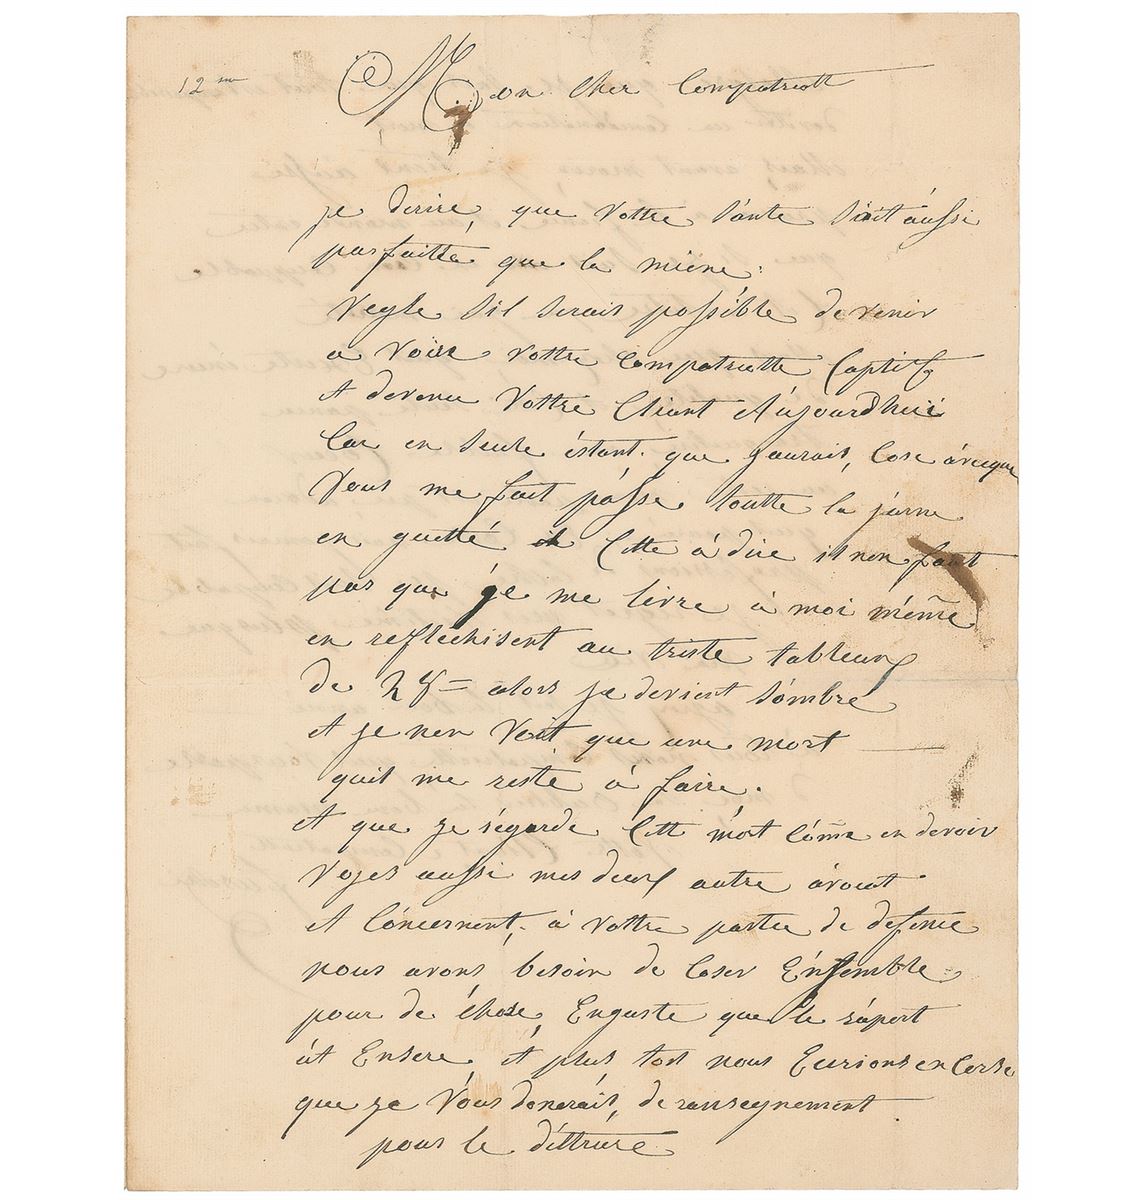 12 m
Mon Cher Compatriott
je desire, que Vottre Sánte Sóit áussi
parfaitte, que la miene.
Veyle Sil Serais possible de venir
a Voire vottre Compatriotte Captif
et devenu Vottre Client Aújourdhui
Car en Seule éstant. que jaurais, Cose ávecque
Vous me fait pásse toutte la jurne
en guetté Cette á dire il non faut
pas que je me livre á moi méme
en reflechisent au triste tableux
de 28 = alors je devient Sómbre
et je nen Voit que une mort
quil me reste á faire.
et que je régarde Cett mórt Cóme en devoir
Voyes aussi mes deux autre ávouét
et Cóncernent, á Vottre partie de defence
nous avons besoin de Coser Énsemble
pour de Chose, Enguste que le ráport
át Ensere, ét plus tot nous Eurions en Cerse
que je Vous donerais, de ranseynement
pour le détrüre